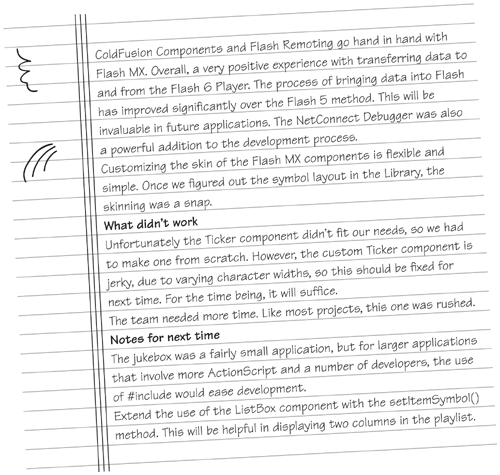 ColdFusion Components and Flash Remoting go hand in hand with
Flash MX. Overall, a very positive experience with transferring data to
and from the Flash 6 Player. The process of bringing data into Flash
has improved significantly over the Flash 5 method. This will be
invaluable in future applications. The NetConnect Debugger was also
a powerful addition to the development process.
Customizing the skin of the Flash MX components is flexible and
simple. Once we figured out the symbol layout in the Library, the
skinning was a snap.
What didn't work
Unfortunately the Ticker component didn't fit our needs, so we had
to make one from scratch. However, the custom Ticker component is
jerky, due to varying character widths, so this should be fixed for
next time. For the time being, it will suffice.
The team needed more time. Like most projects, this one was rushed.
Notes for next time
The jukebox was a fairly small application, but for larger applications
that involve more ActionScript and a number of developers, the use
of #include would ease development.
Extend the use of the ListBox component with the setItemSymbol()
method. This will be helpful in displaying two columns in the playlist.